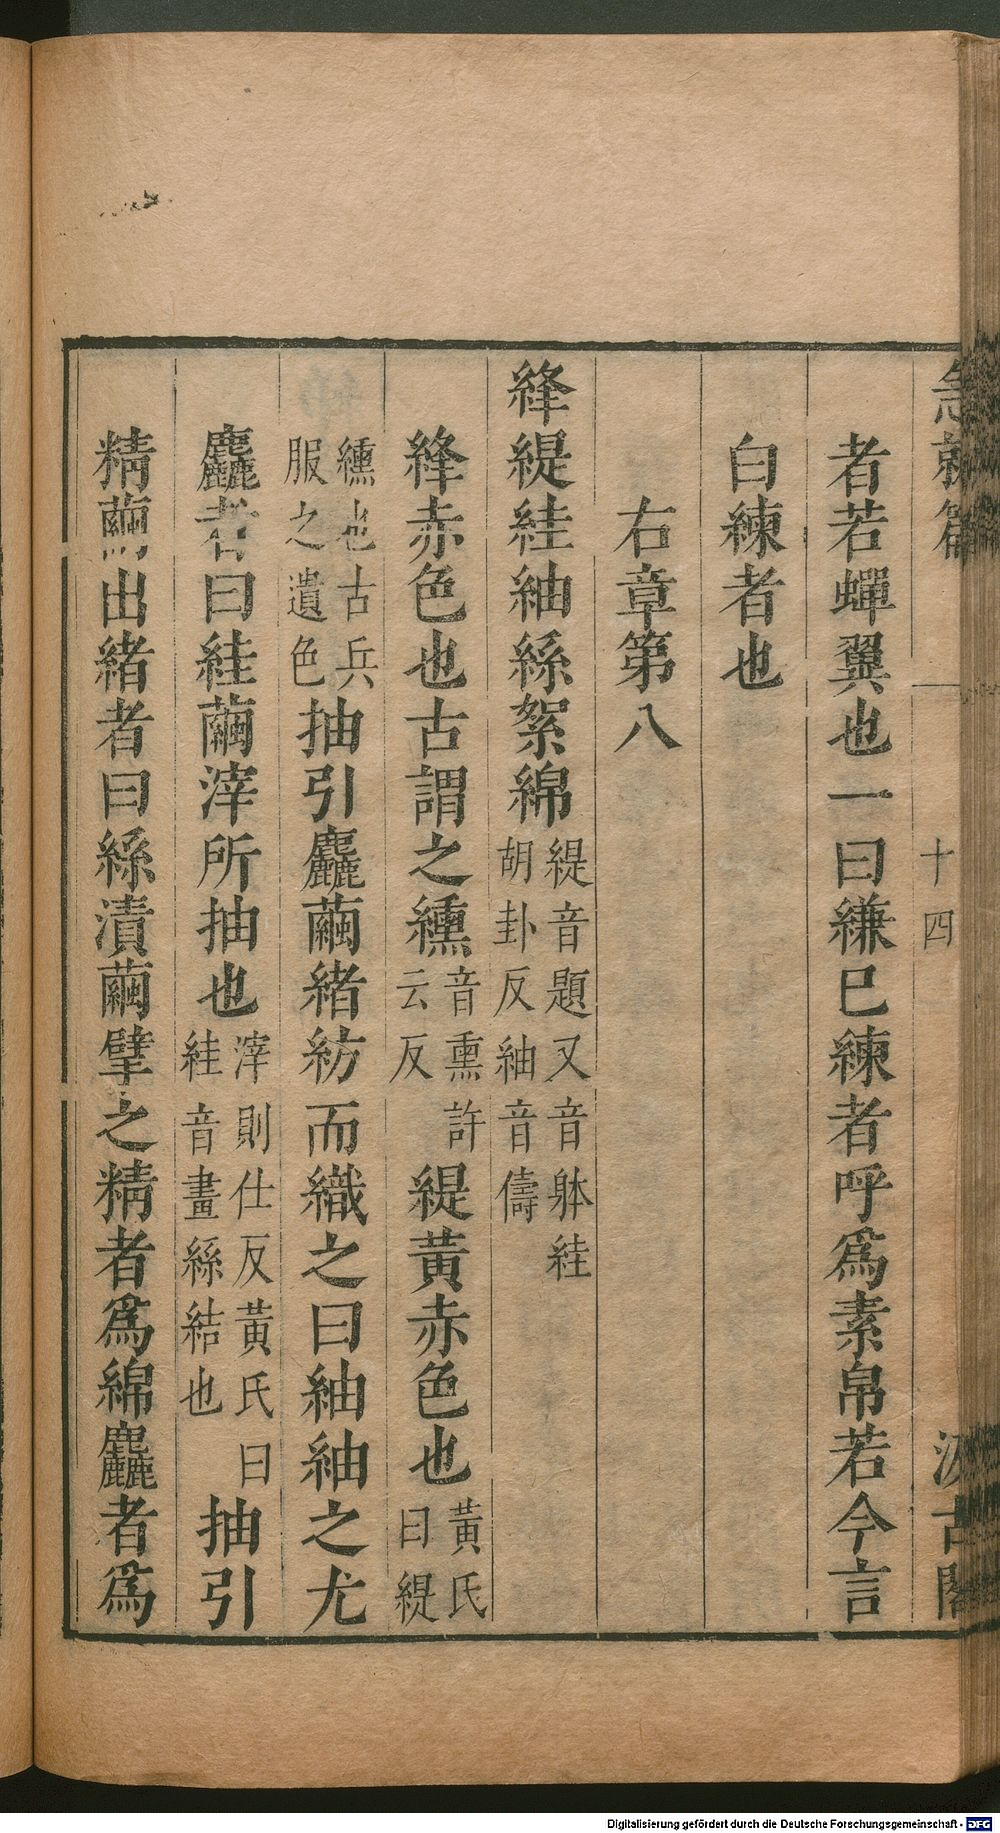 急就篇 十四 汲古閣
者若蟬翼也一曰縑已練者呼爲素帛若今言
白練者也
右章第八
絳緹絓紬絲絮綿緹音題又音躰絓胡卦反紬音儔
絳赤色也古謂之纁音熏許云反緹黃赤色也黃氏曰緹
纁也古兵服之遺色抽引麤繭緒紡而織之曰紬紬之尤
麤者曰絓繭滓所抽也滓則仕反黃氏曰絓音畫絲結也抽引
精繭出緒者曰絲漬繭擘之精者爲綿麤者爲
Digitalisierung gefördert durch die Deutsche Forschungsgemeinschaft - DFG